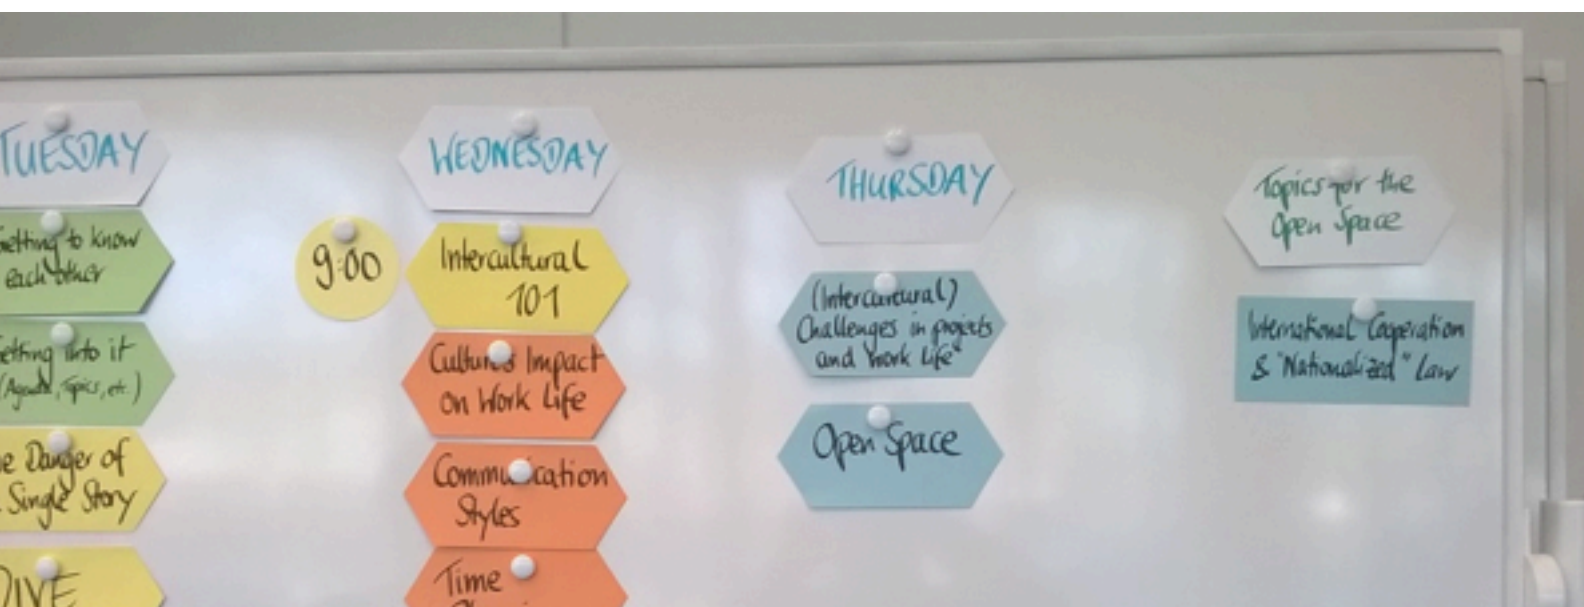 TUESDAY
Getting to know
each other
Getting into it
(Agenda, Topics, etc.)
Danger of
Single Story
DIVE
9:00
WEDNESDAY
Intercultural
101
Culture's Impact
on Work Life
Communication
Styles
Time
THURSDAY
(Intercultural)
Challenges in projects
and Work Life
Open Space
Topics for the
Open Space
International Cooperation
& "Nationalized" Law